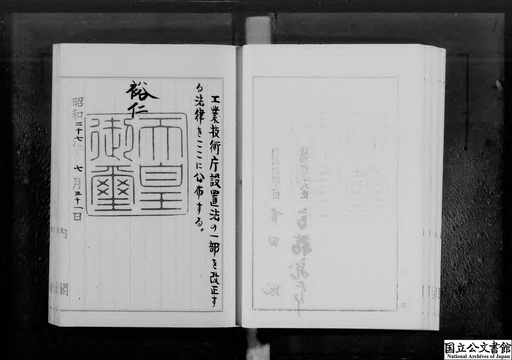 工業技術庁設置法の一部を改正す
る法律をここに公布する。
裕仁
天皇
御璽
昭和二十七年七月三十一日
内閣
国立公文書館
National Archives of Japan